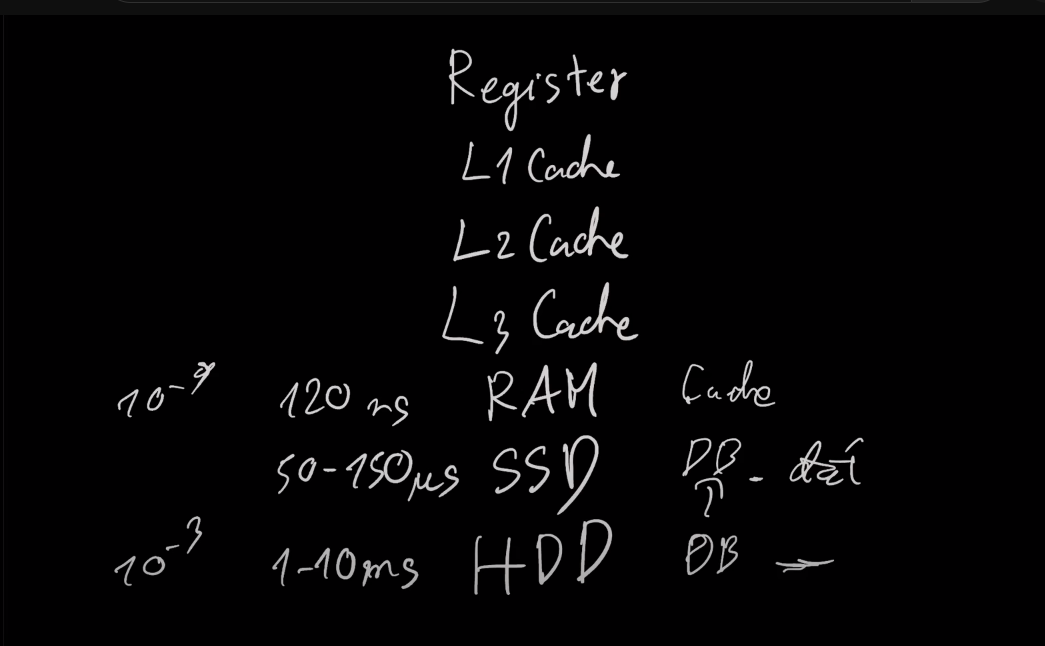 Register
L1 Cache
L2 Cache
L3 Cache
10⁻⁹ 120 ns RAM Cache
50-150μs SSD DB - đắt
10⁻³ 1-10ms HDD DB